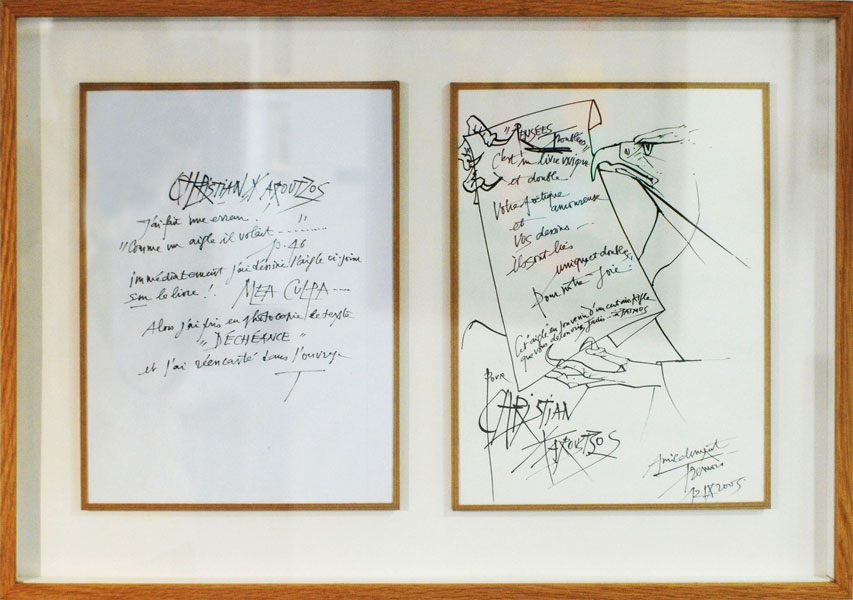 CHRISTIAN YAROUTZOS
J'ai fait une erreur.
"Comme un aigle il volait ----------- "
p. 46
immédiatement j'ai dessiné l'aigle ci-joint
sur le livre !. MEA CULPA ---
Alors j'ai pris en photocopie le texte
"DÉCHÉANCE"
et j'ai réencarté dans l'ouvrage
"PENSÉES
Doublées"
C'est un livre unique
et double
Votre poétique
amoureuse
et
vos dessins --
ils sont liés
unique et double,
Pour notre joie :
Cet aigle en souvenir d'un certain Aigle
que vous découvriez jadis ... à PATMOS
POUR
CHRISTIAN
YAROUTSOS
Amicalement
12 IX 2005